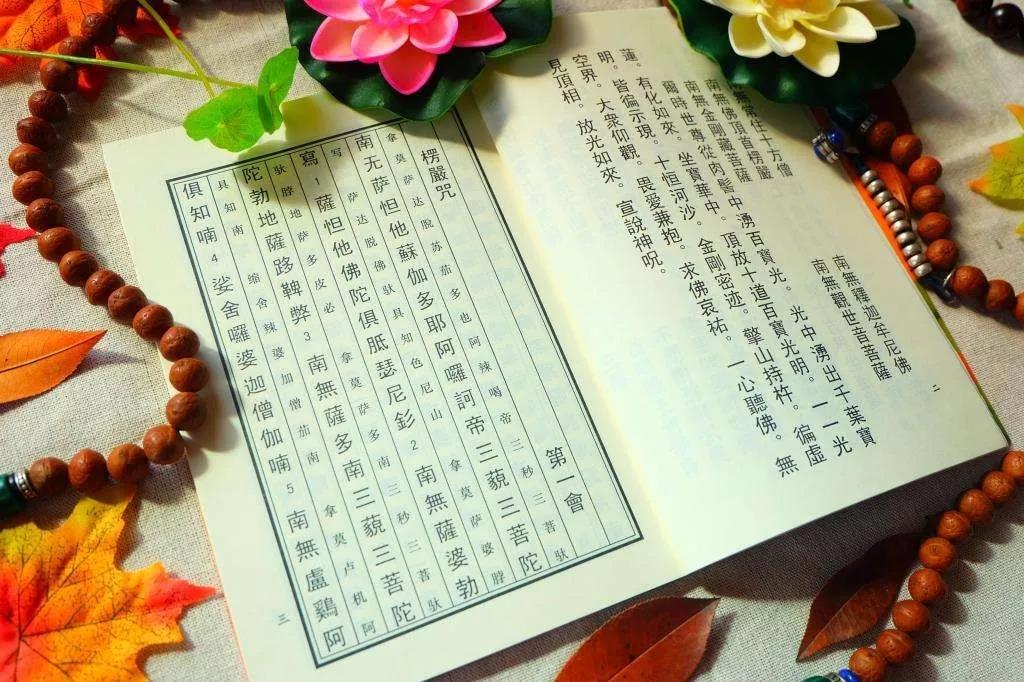 無常住十方僧 南無釋迦牟尼佛
南無佛頂首楞嚴 南無觀世音菩薩
南無金剛藏菩薩
爾時世尊從肉髻中湧百寶光。光中湧出千葉寶
蓮。有化如來。坐寶華中。頂放十道百寶光明。一一光
明。皆徧示現。十恒河沙。金剛密迹。擎山持杵。徧虛
空界。大衆仰觀。畏愛兼抱。求佛哀祐。一心聽佛。無
見頂相。放光如來。宣說神呪。
二
楞嚴咒 第一會
拿莫萨达脱苏茄多也阿辣喝帝三秒三菩驮
南无萨怛他蘇伽多耶阿囉訶帝三藐三菩陀
写 萨达脱佛驮具知色尼山 拿莫萨婆脖
寫1 薩怛他佛陀俱胝瑟尼釤2 南無薩婆勃
驮脖地萨多皮必 拿莫萨多南三秒三菩驮
陀勃地薩跢鞞弊3 南無薩多南三藐三菩陀
具知南 缩舍辣婆加僧茄南 拿莫卢机阿
俱知喃4 娑舍囉婆迦僧伽喃5 南無盧鷄阿
三